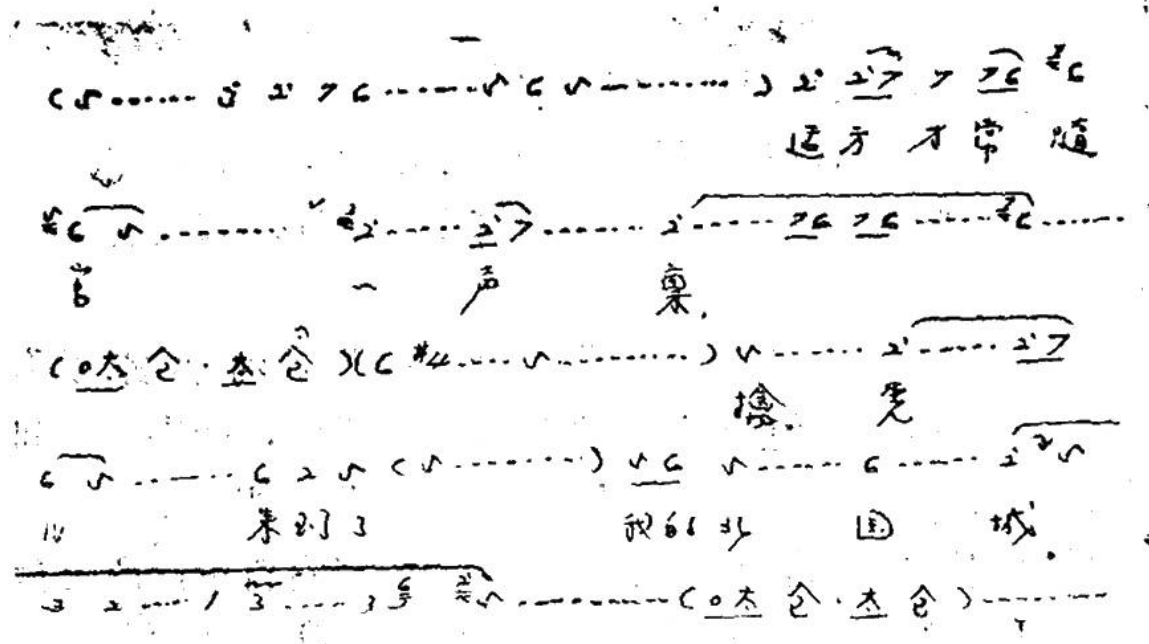 (5…… 3̇ 2̇ 7 6……5 6 5………) 2̇ 2̇7 7 76 6
适方才常随
6 5……… 2̇…… 2̇7…… 2̇…… 76 76…… 6……
官一声禀.
(0太 仓·太 仓)(6 #4……5………) 5…… 2̇…… 2̇7
擒.
6 5…… 6 2 5 (5………) 5 6 5…… 6…… 2̇ 5
来到了我的北国城.
3 2…… 1 3…… 3 5………(0太 仓·太 仓)………